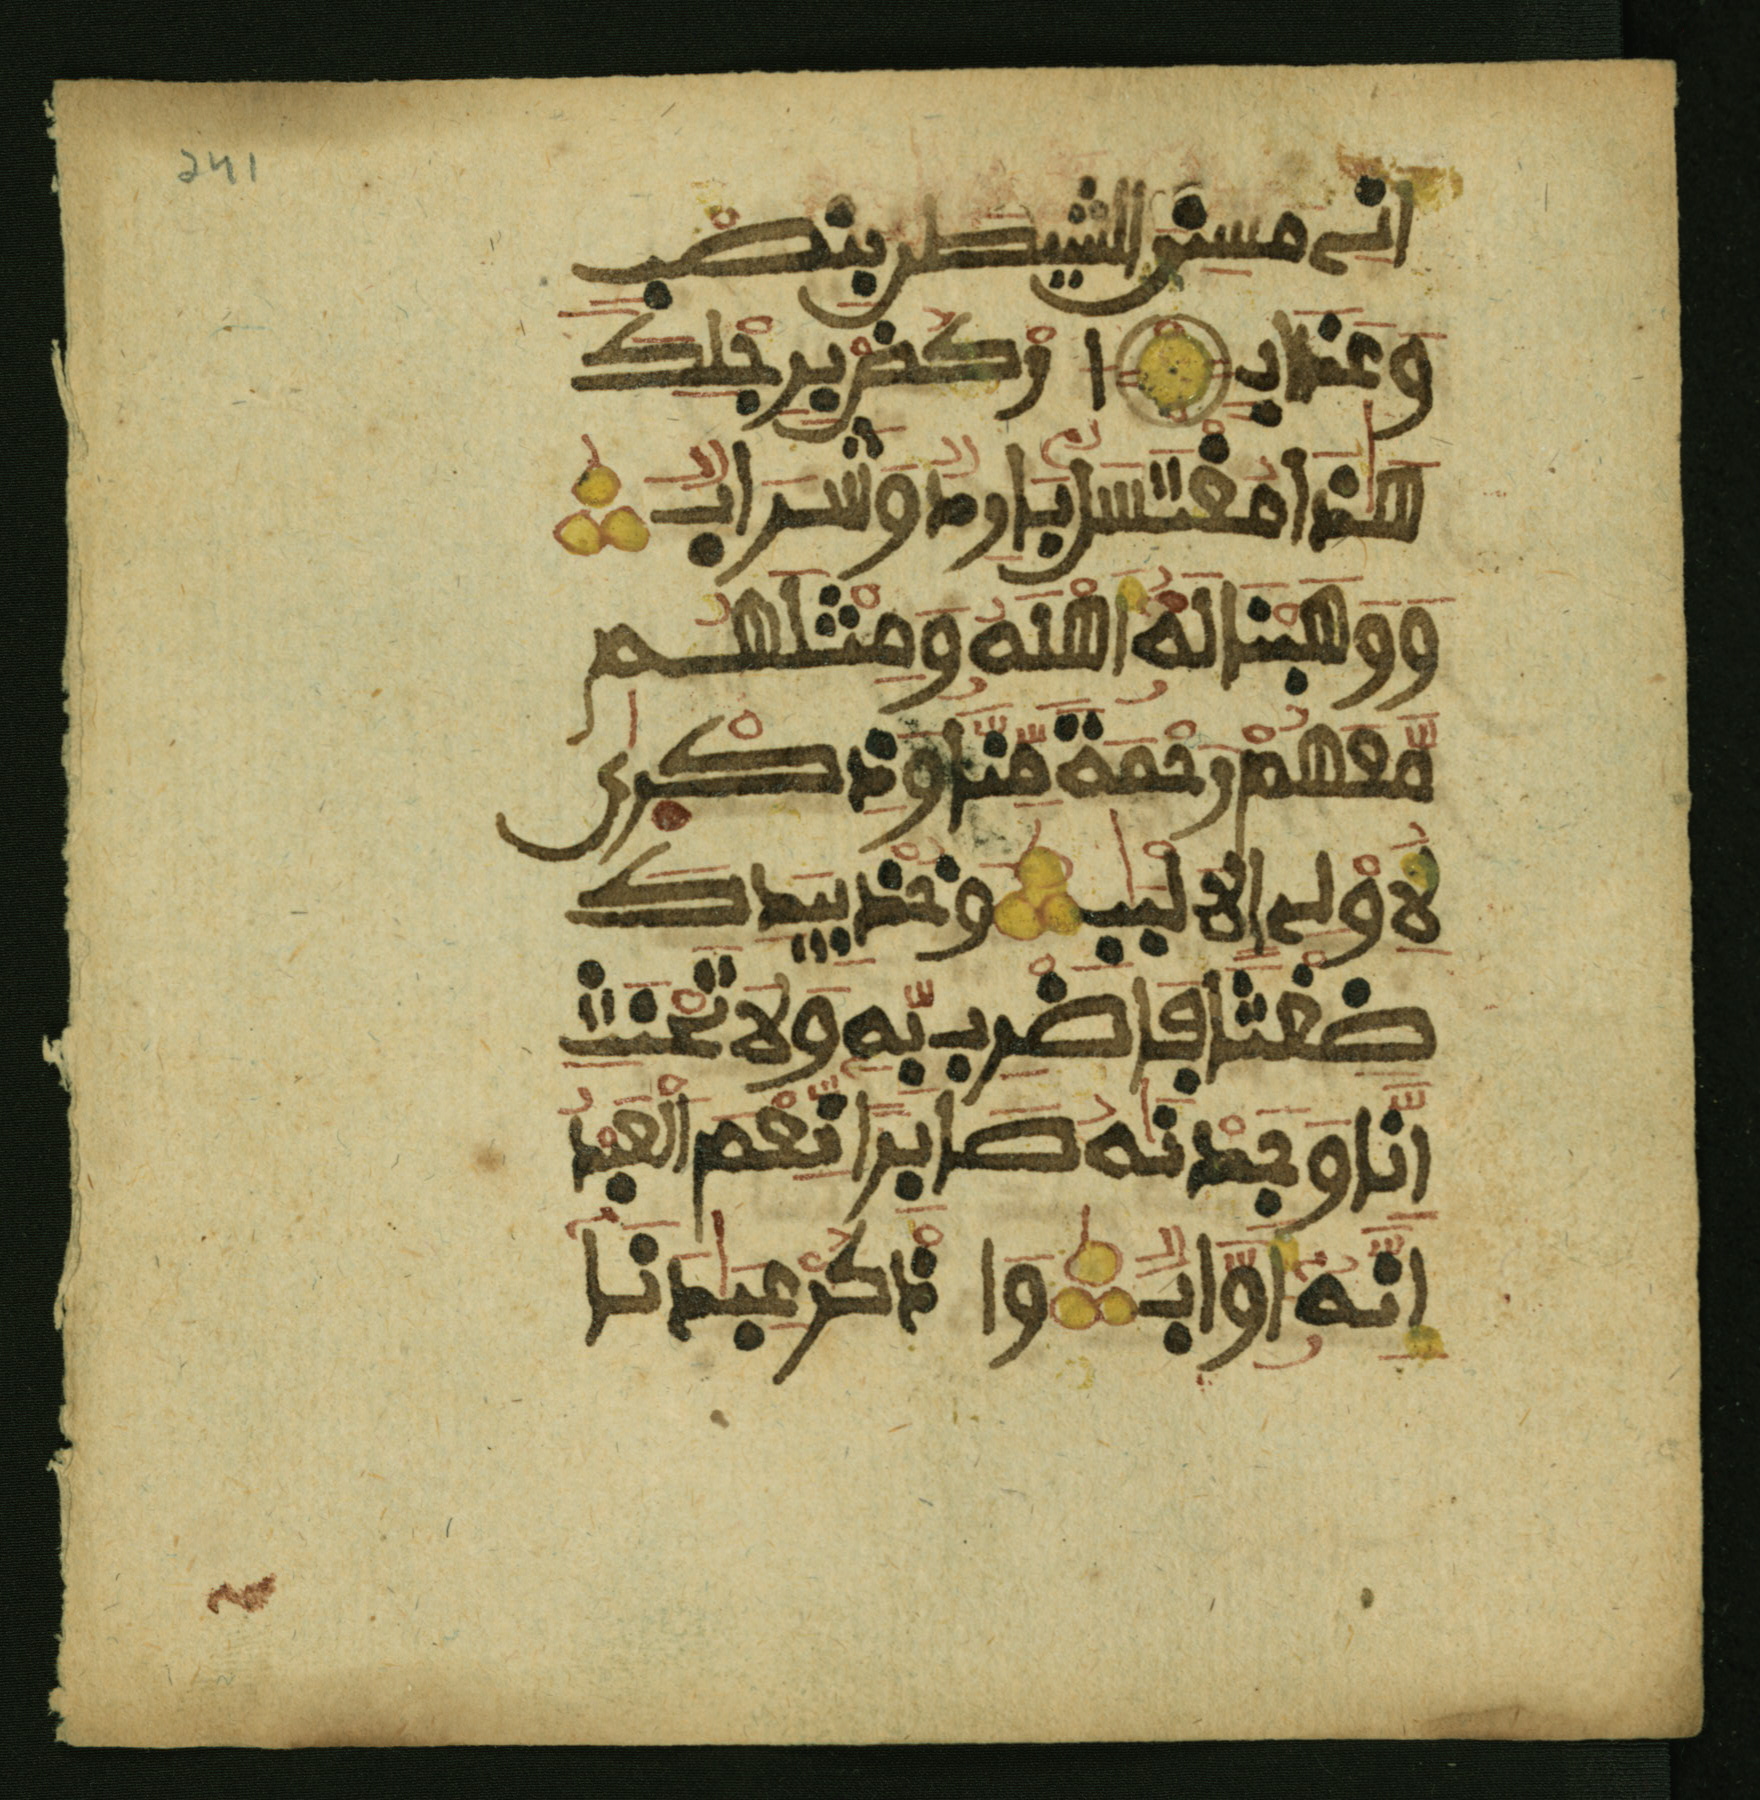 241
انے مسنى الشيطن بنصب
وعذاب ا ركض برجلك
هذا مغتسل بارد وشراب
ووهبنا له اهله ومثلهم
معهم رحمة منا وذكرى
لاولے الالبب وخذ بيدك
ضغثا فاضرب به ولا تحنث
انا وجدنه صابرا نعم العبد
انه اواب وا ذكر عبدنا